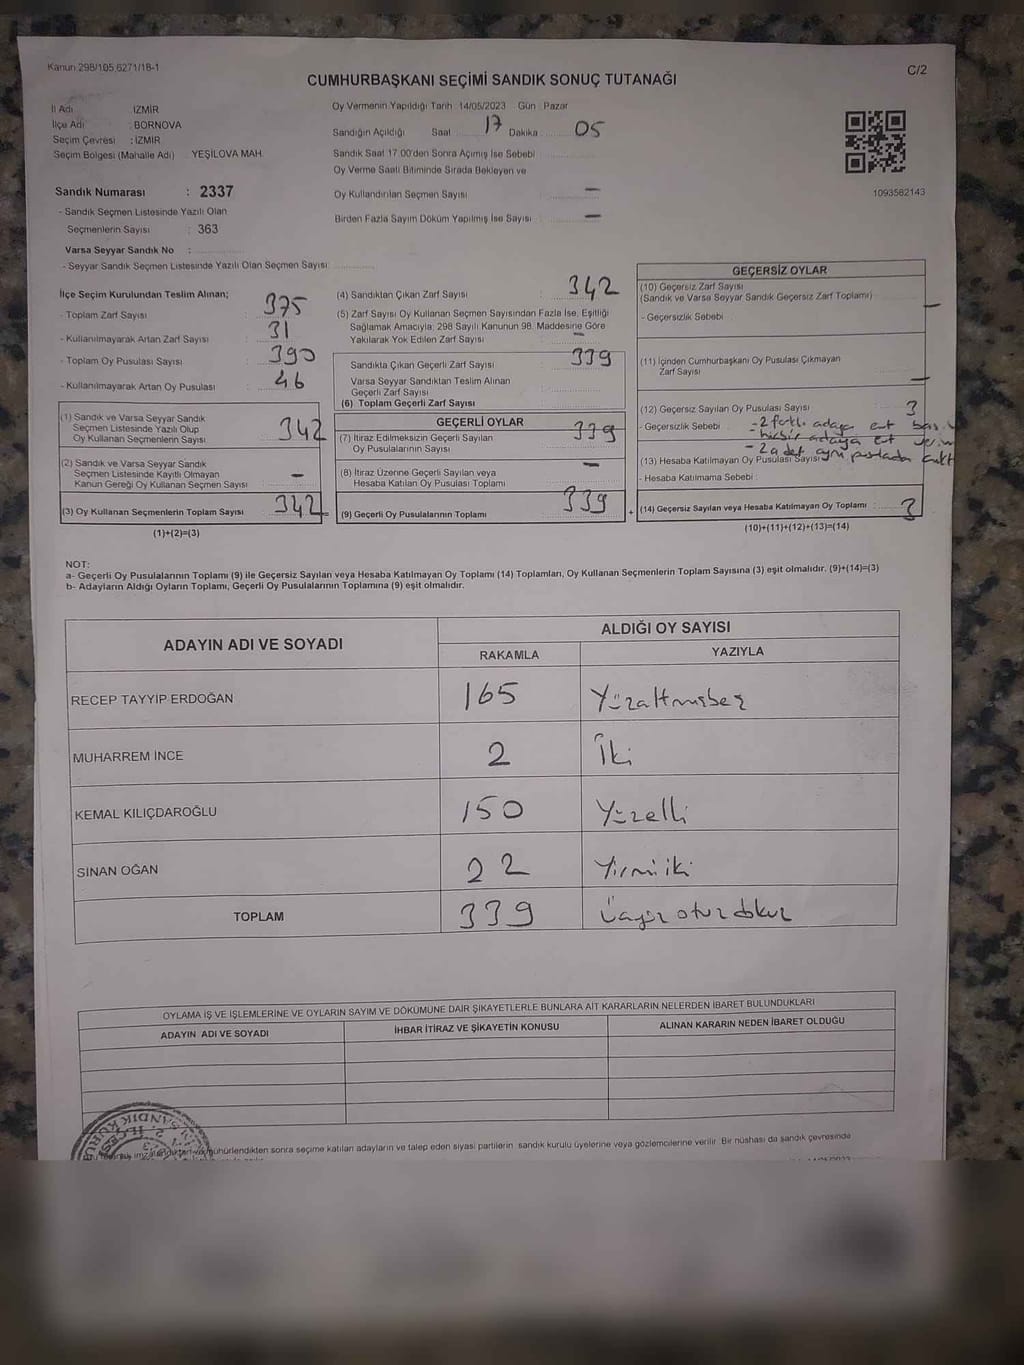 Kanun 298/105 6271/18-1
C/2
CUMHURBAŞKANI SEÇİMİ SANDIK SONUÇ TUTANAĞI
İl Adı : İZMİR
İlçe Adı : BORNOVA
Seçim Çevresi : İZMİR
Seçim Bölgesi (Mahalle Adı) : YEŞİLOVA MAH.
Sandık Numarası : 2337
- Sandık Seçmen Listesinde Yazılı Olan
Seçmenlerin Sayısı : 363
Varsa Seyyar Sandık No :
- Seyyar Sandık Seçmen Listesinde Yazılı Olan Seçmen Sayısı:
Oy Vermenin Yapıldığı Tarih : 14/05/2023 Gün : Pazar
Sandığın Açıldığı Saat : 17 Dakika : 05
Sandık Saat 17.00'den Sonra Açılmış İse Sebebi :
Oy Verme Saati Bitiminde Sırada Bekleyen ve
Oy Kullandırılan Seçmen Sayısı : —
Birden Fazla Sayım Döküm Yapılmış İse Sayısı : —
1093582143
İlçe Seçim Kurulundan Teslim Alınan;
- Toplam Zarf Sayısı : 375
- Kullanılmayarak Artan Zarf Sayısı : 31
- Toplam Oy Pusulası Sayısı : 390
- Kullanılmayarak Artan Oy Pusulası : 46
(1) Sandık ve Varsa Seyyar Sandık
Seçmen Listesinde Yazılı Olup
Oy Kullanan Seçmenlerin Sayısı : 342
(2) Sandık ve Varsa Seyyar Sandık
Seçmen Listesinde Kayıtlı Olmayan
Kanun Gereği Oy Kullanan Seçmen Sayısı : —
(3) Oy Kullanan Seçmenlerin Toplam Sayısı : 342
(1)+(2)=(3)
(4) Sandıktan Çıkan Zarf Sayısı : 342
(5) Zarf Sayısı Oy Kullanan Seçmen Sayısından Fazla İse, Eşitliği
Sağlamak Amacıyla; 298 Sayılı Kanunun 98. Maddesine Göre
Yakılarak Yok Edilen Zarf Sayısı : —
Sandıkta Çıkan Geçerli Zarf Sayısı : 339
Varsa Seyyar Sandıktan Teslim Alınan
Geçerli Zarf Sayısı
(6) Toplam Geçerli Zarf Sayısı
GEÇERLİ OYLAR
(7) İtiraz Edilmeksizin Geçerli Sayılan
Oy Pusulasının Sayısı : 339
(8) İtiraz Üzerine Geçerli Sayılan veya
Hesaba Katılan Oy Pusulası Toplamı : —
(9) Geçerli Oy Pusulalarının Toplamı : 339
GEÇERSİZ OYLAR
(10) Geçersiz Zarf Sayısı
(Sandık ve Varsa Seyyar Sandık Geçersiz Zarf Toplamı) : —
- Geçersizlik Sebebi :
(11) İçinden Cumhurbaşkanı Oy Pusulası Çıkmayan
Zarf Sayısı : —
(12) Geçersiz Sayılan Oy Pusulası Sayısı : 3
- Geçersizlik Sebebi : - 2 farklı adaya evet
hiçbir adaya evet
- 2 adet aynı
(13) Hesaba Katılmayan Oy Pusulası Sayısı
- Hesaba Katılmama Sebebi :
(14) Geçersiz Sayılan veya Hesaba Katılmayan Oy Toplamı : 3
(10)+(11)+(12)+(13)=(14)
NOT:
a- Geçerli Oy Pusulalarının Toplamı (9) ile Geçersiz Sayılan veya Hesaba Katılmayan Oy Toplamı (14) Toplamları, Oy Kullanan Seçmenlerin Toplam Sayısına (3) eşit olmalıdır. (9)+(14)=(3)
b- Adayların Aldığı Oyların Toplamı, Geçerli Oy Pusulalarının Toplamına (9) eşit olmalıdır.
ADAYIN ADI VE SOYADI ALDIĞI OY SAYISI
RAKAMLA YAZIYLA
RECEP TAYYİP ERDOĞAN 165 Yüzaltmışbeş
MUHARREM İNCE 2 İki
KEMAL KILIÇDAROĞLU 150 Yüzelli
SİNAN OĞAN 22 Yirmiiki
TOPLAM 339 Üçyüz otuz dokuz
OYLAMA İŞ VE İŞLEMLERİNE VE OYLARIN SAYIM VE DÖKÜMÜNE DAİR ŞİKAYETLERLE BUNLARA AİT KARARLARIN NELERDEN İBARET BULUNDUKLARI
ADAYIN ADI VE SOYADI İHBAR İTİRAZ VE ŞİKAYETİN KONUSU ALINAN KARARIN NEDEN İBARET OLDUĞU
mühürlendikten sonra seçime katılan adayların ve talep eden siyasi partilerin sandık kurulu üyelerine veya gözlemcilerine verilir. Bir nüshası da sandık çevresinde